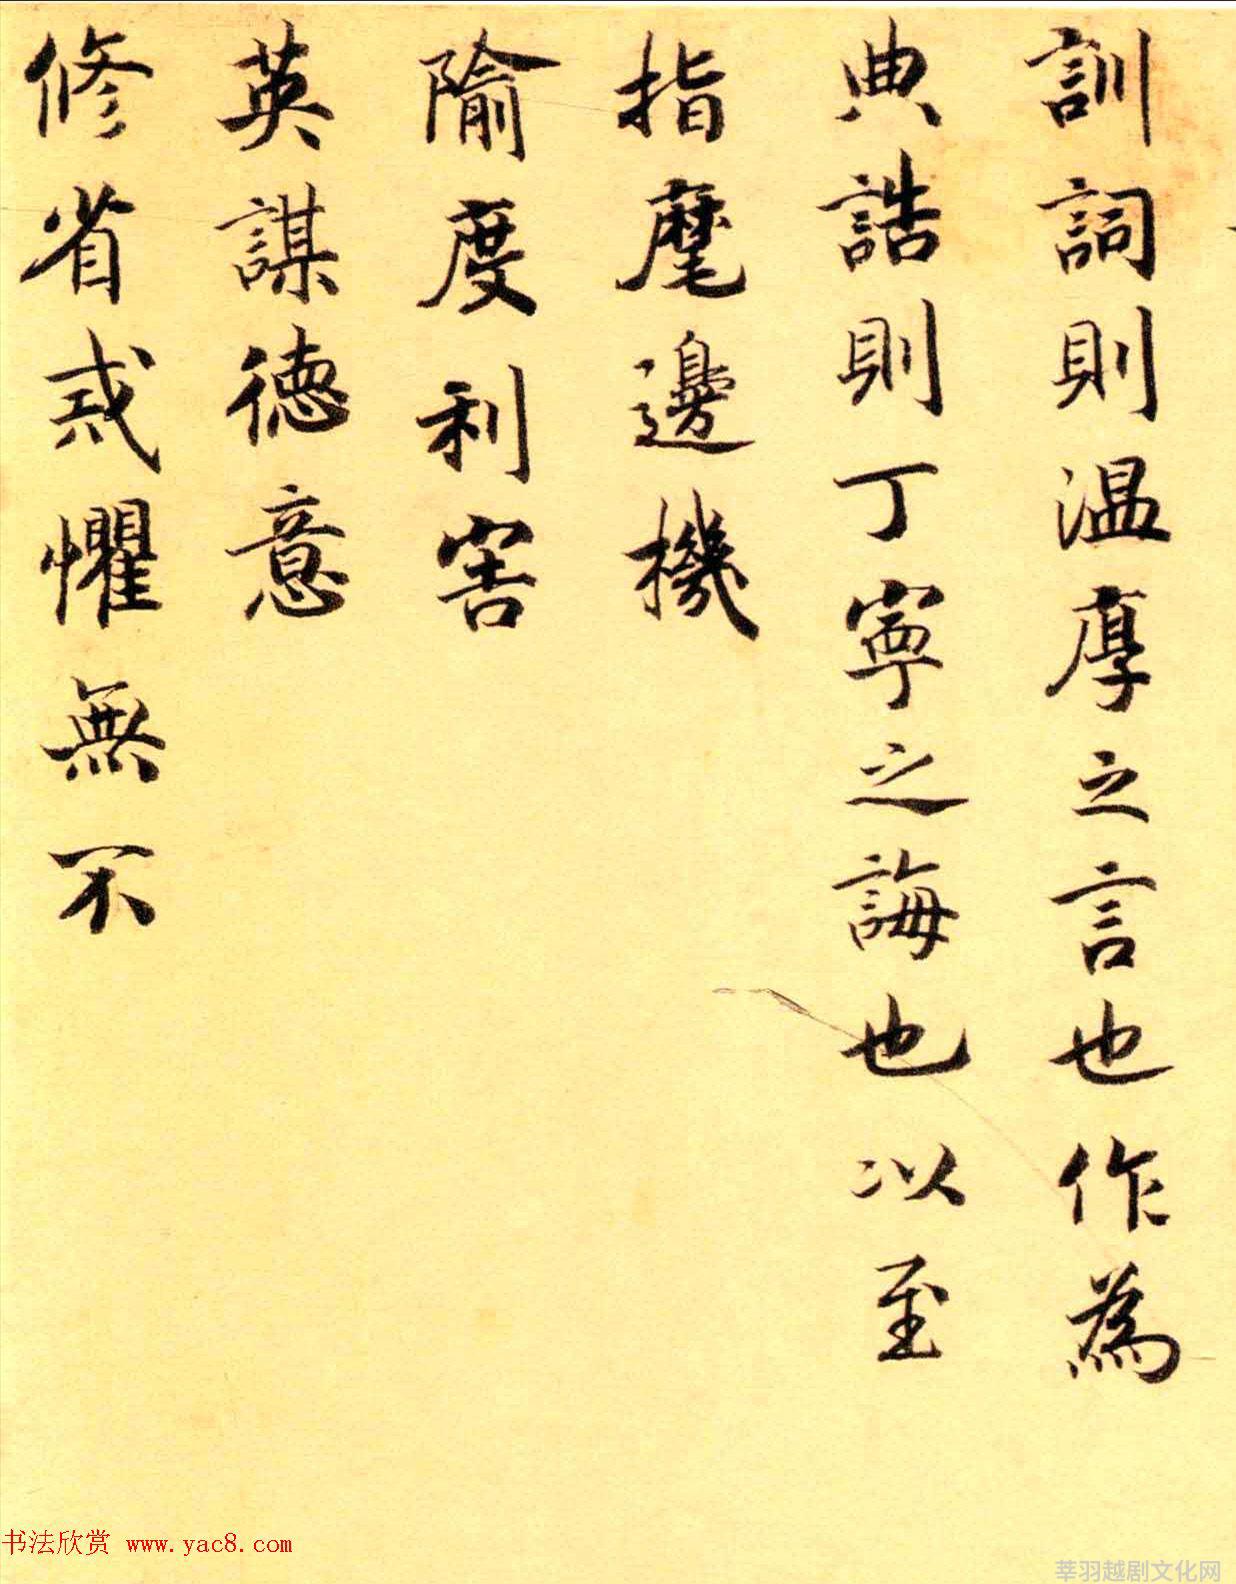 訓詞則温厚之言也作為
典誥則丁寧之誨也以至
指麾邊機
隃度利害
英謀德意
修省戒懼無不
书法欣赏 www.yac8.com
莘羽越剧文化网